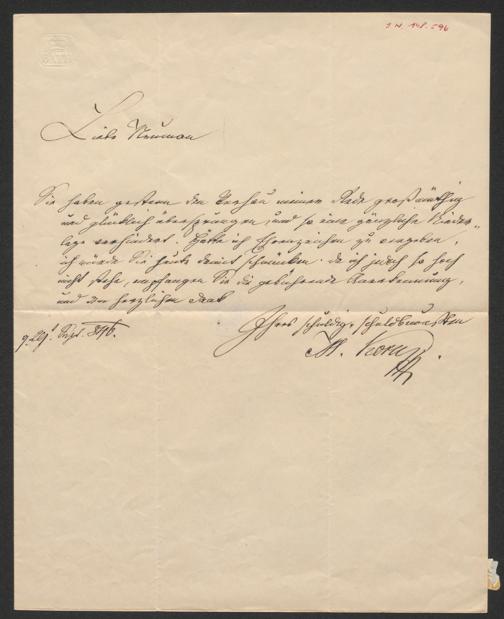 I.N. 148.596
BATH
Liebe Neumann
Sie haben gestern den Verhau meiner Rede großmüthig
und glücklich übersprungen, und so eine gänzliche Nieder-
lage verhindert. Hätte ich Ehrenzeichen zu vergeben,
ich würde Sie heute damit schmücken. da ich jedoch so hoch
nicht stehe, empfangen Sie die gebührende Anerkennung,
und den herzlichen Dank
Ihres schuldigen schuldbewußten
Sept. 846.
M. Korn